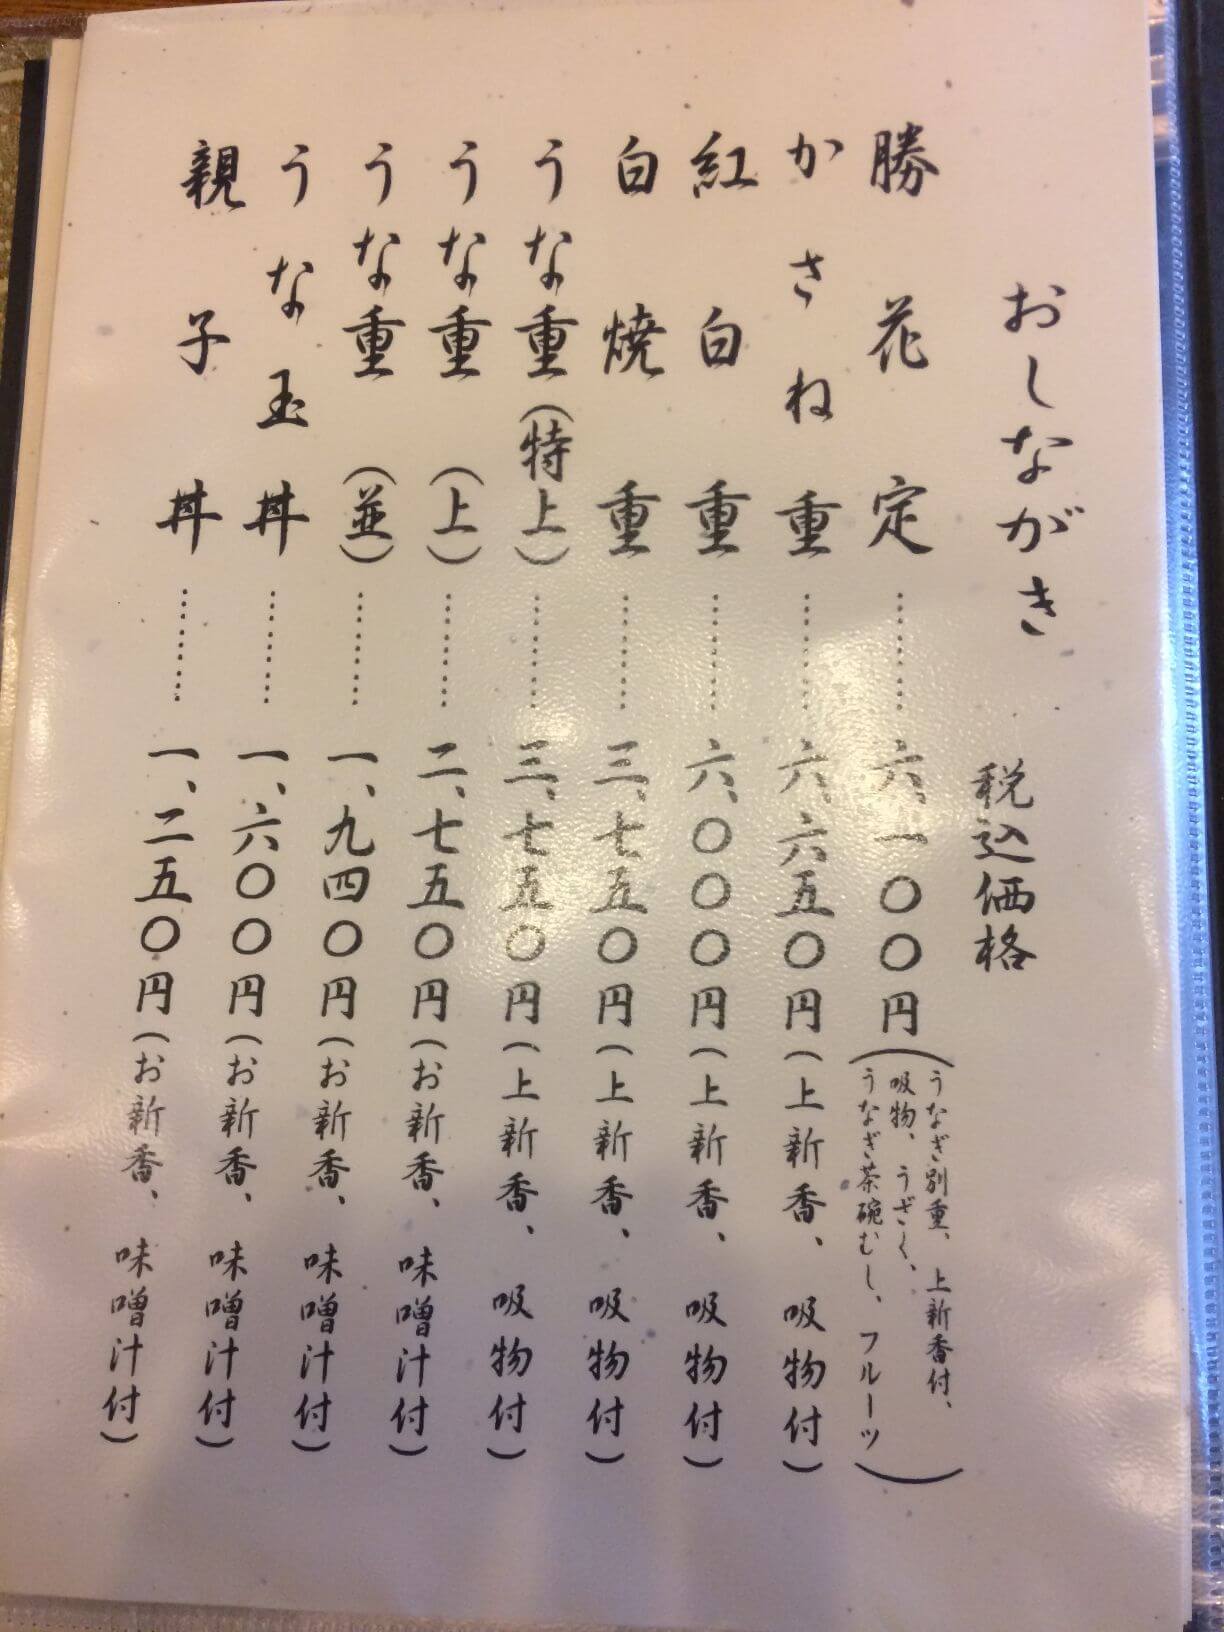 おしながき 税込価格
勝花定………六、一〇〇円(うなぎ別重、上新香付、
吸物、うざく、
うなぎ茶碗むし、フルーツ)
かさね重………六、六五〇円(上新香、吸物付)
紅白重………六、〇〇〇円(上新香、吸物付)
白焼重………三、七五〇円(上新香、吸物付)
うな重(特上)………三、七五〇円(上新香、吸物付)
うな重(上)………二、七五〇円(お新香、味噌汁付)
うな重(並)………一、九四〇円(お新香、味噌汁付)
うな玉丼………一、六〇〇円(お新香、味噌汁付)
親子丼………一、二五〇円(お新香、味噌汁付)